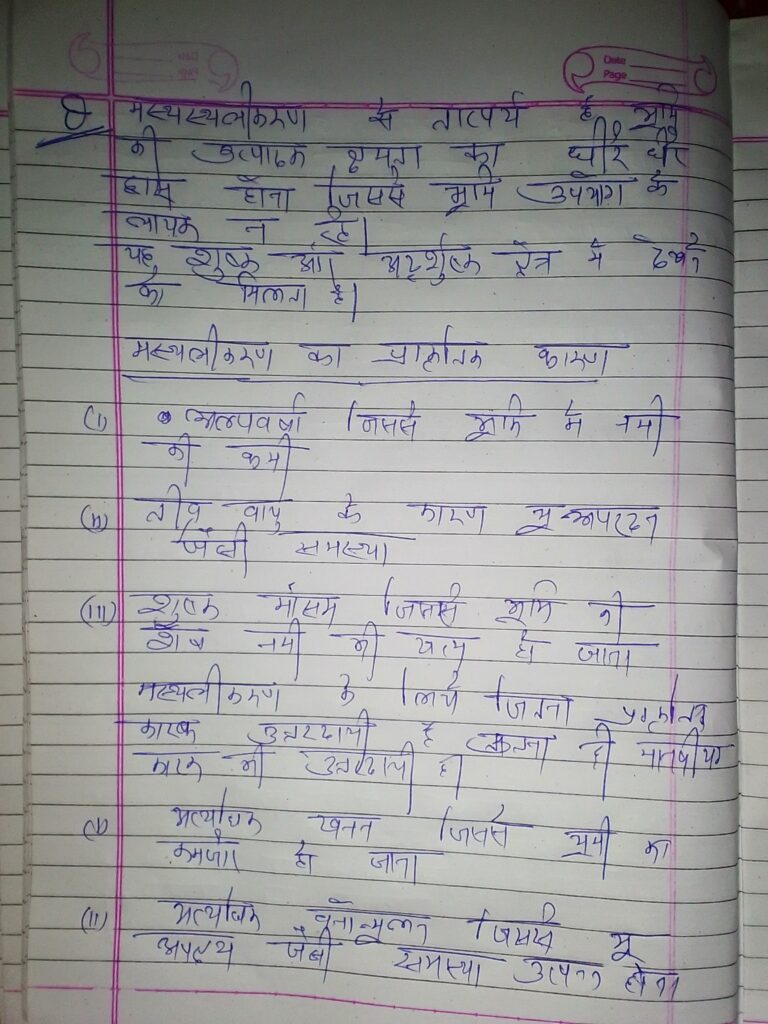 Date
Page
मरुस्थलीकरण से तात्पर्य है भूमि
की उत्पादक क्षमता का धीरे धीरे
ह्रास होना जिससे भूमि उपयोग के
लायक न रहे।
यह शुष्क और अर्द्धशुष्क क्षेत्र में देखने
को मिलता है।
मरुस्थलीकरण का प्राकृतिक कारण
(i) अल्पवर्षा जिससे भूमि में नमी
की कमी
(ii) तीव्र वायु के कारण भू-अपरदन
जैसी समस्या
(iii) शुष्क मौसम जिससे भूमि की
शेष नमी भी खत्म हो जाता
मरुस्थलीकरण के लिये जितना प्राकृतिक
कारक उत्तरदायी है उतना ही मानवीय
कारक भी उत्तरदायी है।
(i) अत्यधिक खनन जिससे भूमी का
कमजोर हो जाता
(ii) अत्यधिक वनोन्मूलन जिससे भू
जैसी समस्या उत्पन्न होता